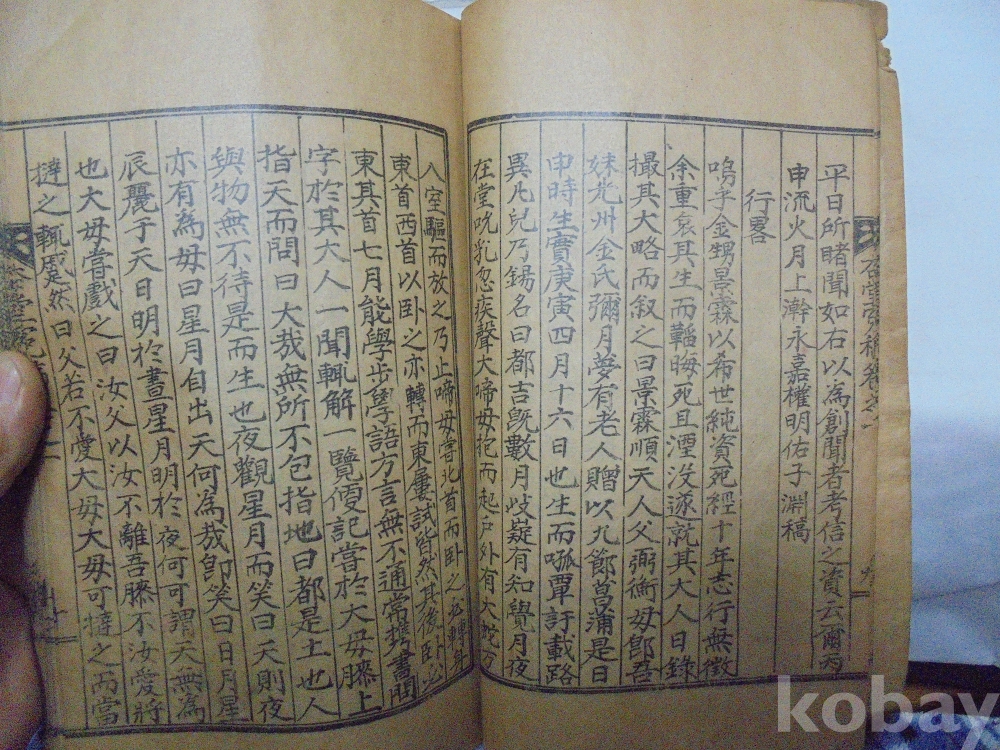 平日所睹聞如右以為創聞者考信之資云爾丙
申流火月上澣永嘉權明佑子淵稿
行畧
嗚乎金甥景霖以希世純資死經十年志行無徵
余重哀其生而韜晦死且湮沒遂就其大人日錄
撮其大略而叙之曰景霖順天人父弼衡母卽吾
妹光州金氏彌月夢有老人贈以九節菖蒲是日
申時生實庚寅四月十六日也生而呱覃訏載路
異凡兒乃錫名曰都吉旣數月岐嶷有知覺月夜
在堂吮乳忽疾聲大啼母抱而起戶外有大
入室驅而放之乃止啼母嘗北首而臥之必轉身
東首西首以臥之亦轉而東屢試皆然其後臥必
東其首七月能學步學語方言無不通常携書問
字於其大人一聞輒解一覽便記嘗於大母膝上
指天而問曰大哉無所不包指地曰都是土也人
與物無不待是而生也夜觀星月而笑曰天則夜
亦有為母曰星月自出天何為哉卽笑曰日月星
辰麗于天日明於晝星月明於夜何可謂天無為
也大母嘗戲之曰汝父以汝不離吾膝不汝愛將
撻之輒蹙然曰父若不愛大母大母可撻之而當
kobay